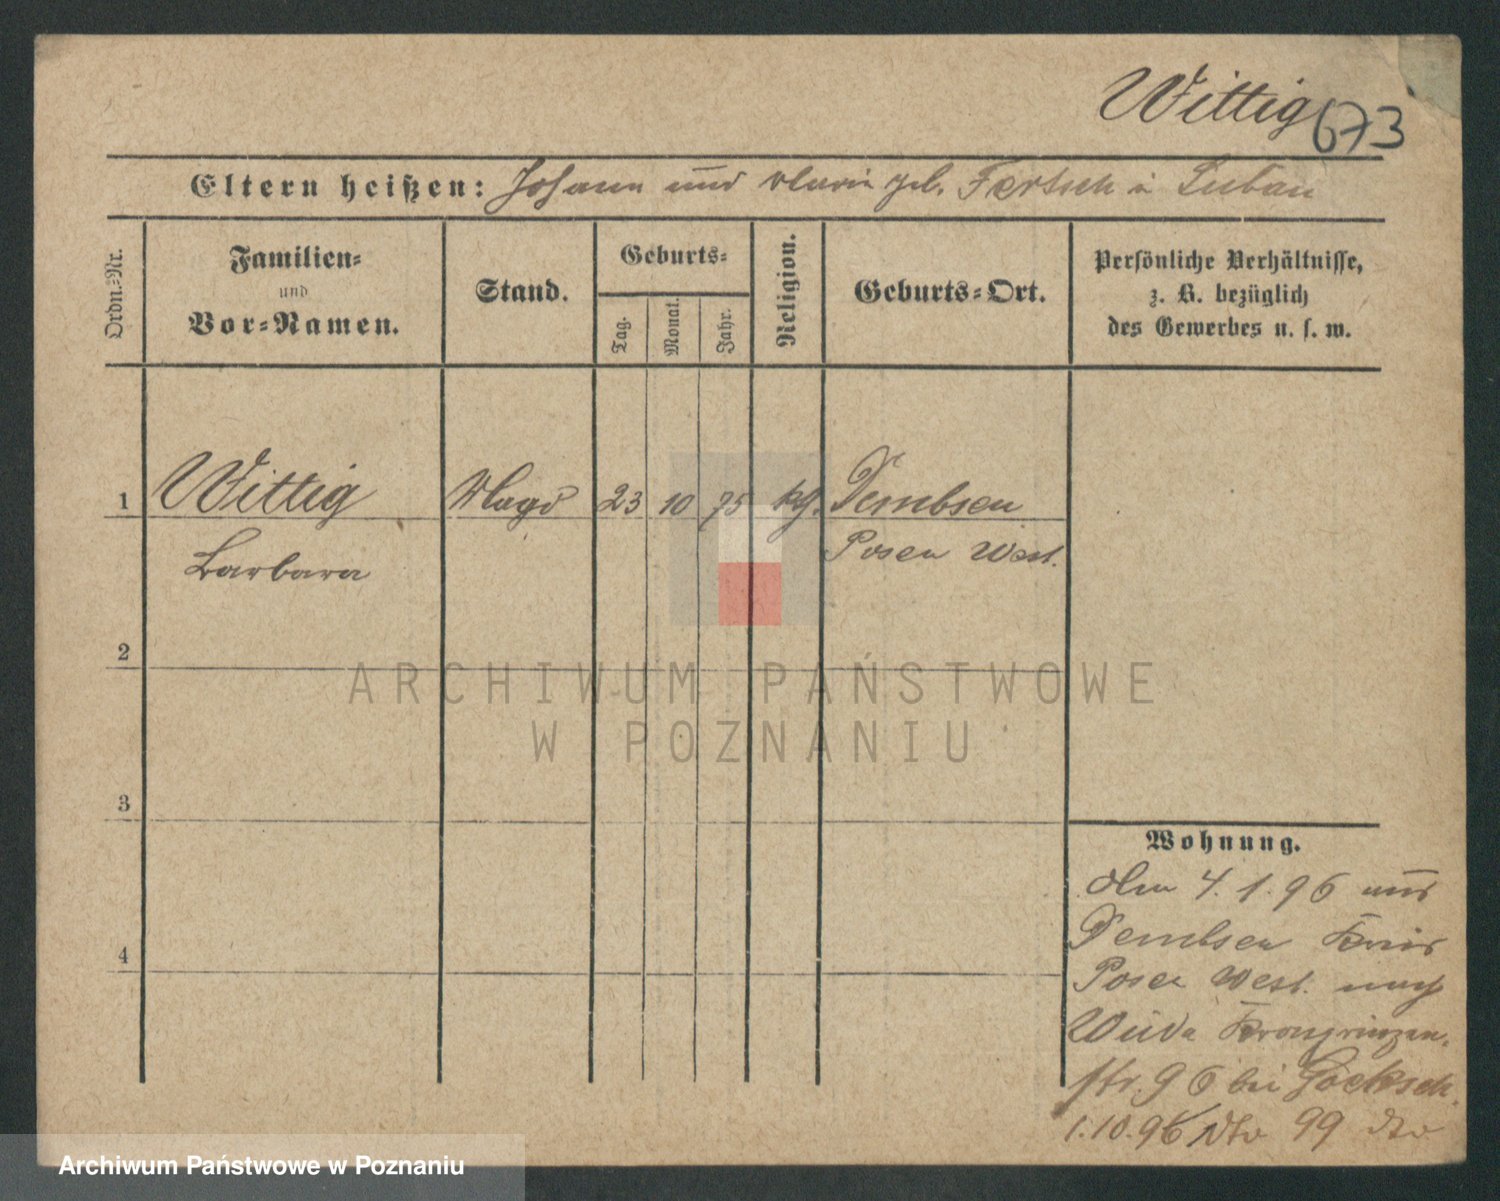 Wittig 673
Eltern heißen: Johann und Marie geb. Fertsch in Luban
Ordn.-Nr.
Familien-
und
Vor-Namen.
Stand.
Geburts-
Tag.
Monat.
Jahr.
Religion.
Geburts-Ort.
Persönliche Verhältnisse,
z. B. bezüglich
des Gewerbes u. s. w.
1 Wittig Magd 23 10 75 kg. Dembsen
Barbara Posen West.
2
3
4
Wohnung.
Am 4.1.96 aus
Dembsen Kreis
Posen West. nach
Wilda Kronprinzen-
str. 96 bei
1.10.96 Nto 99 dto
ARCHIWUM PAŃSTWOWE
W POZNANIU
Archiwum Państwowe w Poznaniu